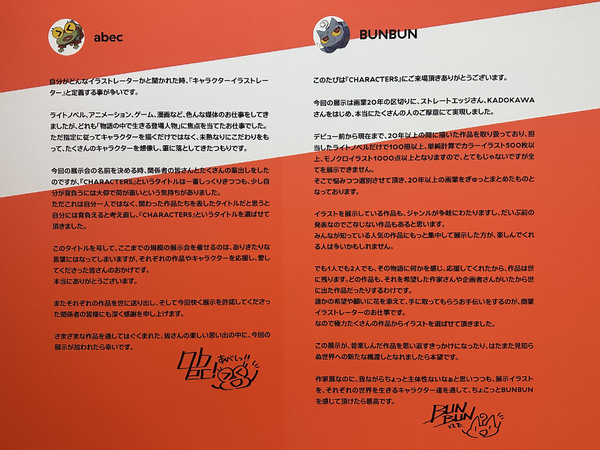 abec
自分がどんなイラストレーターかと聞かれた時、「キャラクターイラストレー
ター」と定義する事が多いです。
ライトノベル、アニメーション、ゲーム、漫画など、色んな媒体のお仕事をしてき
ましたが、どれも「物語の中で生きる登場人物」に焦点を当てたお仕事でした。
ただ指定に従ってキャラクターを描くだけではなく、未熟なりにこだわりをも
って、たくさんのキャラクターを想像し、筆に落としてきたつもりです。
今回の展示会の名前を決める時、関係者の皆さんとたくさんの案出しをした
のですが、『CHARACTERS』というタイトルは一番しっくりきつつも、少し自
分が背負うには大仰で荷が重いという気持ちがありました。
ただこれは自分一人ではなく、関わった作品たちを表したタイトルだと思うと
自分には背負えると考え直し、『CHARACTERS』というタイトルを選ばせて
頂きました。
このタイトルを号して、ここまでの規模の展示会を催せるのは、ありきたりな
言葉にはなってしまいますが、それぞれの作品やキャラクターを応援し、愛し
てくださった皆さんのおかげです。
本当にありがとうございます。
またそれぞれの作品を世に送り出し、そして今回快く展示を許諾してくださっ
た関係者の皆様にも深く感謝を申し上げます。
さまざまな作品を通してはぐくまれた、皆さんの楽しい思い出の中に、今回の
展示が加われたら幸いです。
BUNBUN
このたびは『CHARACTERS』にご来場頂きありがとうございます。
今回の展示は画業20年の区切りに、ストレートエッジさん、KADOKAWA
さんをはじめ、本当にたくさんの人のご厚意にて実現しました。
デビュー前から現在まで、20年以上の間に描いた作品を取り扱っており、担
当したライトノベルだけで100冊以上、単純計算でカラーイラスト500枚以
上、モノクロイラスト1000点以上となりますので、とてもじゃないですが全
てを展示できません。
そこで悩みつつ選別させて頂き、20年以上の画業をぎゅっとまとめたものと
なっております。
イラストを展示している作品も、ジャンルが多岐にわたりますし、だいぶ前の
発表なのでご存じない作品もあると思います。
みんなが知っている人気の作品にもっと集中して展示した方が、楽しんでくれ
る人は多いかもしれません。
でも1人でも2人でも、その物語に何かを感じ、応援してくれたから、作品は世
に残ります。どの作品も、それを希望した作家さんや企画者さんがいたから世
に出た作品だったりするわけです。
誰かの希望や願いに花を添えて、手に取ってもらうお手伝いをするのが、商業
イラストレーターのお仕事です。
なので極力たくさんの作品からイラストを選ばせて頂きました。
この展示が、昔楽しんだ作品を思い返すきっかけになり、はたまた見知ら
ぬ世界への新たな橋渡しとなれましたら本望です。
作家展なのに、我ながらちょっと主体性ないなぁと思いつつも、展示イラスト
を、それぞれの世界を生きるキャラクター達を通して、ちょこっとBUNBUN
を感じて頂けたら最高です。
BUN
BUN